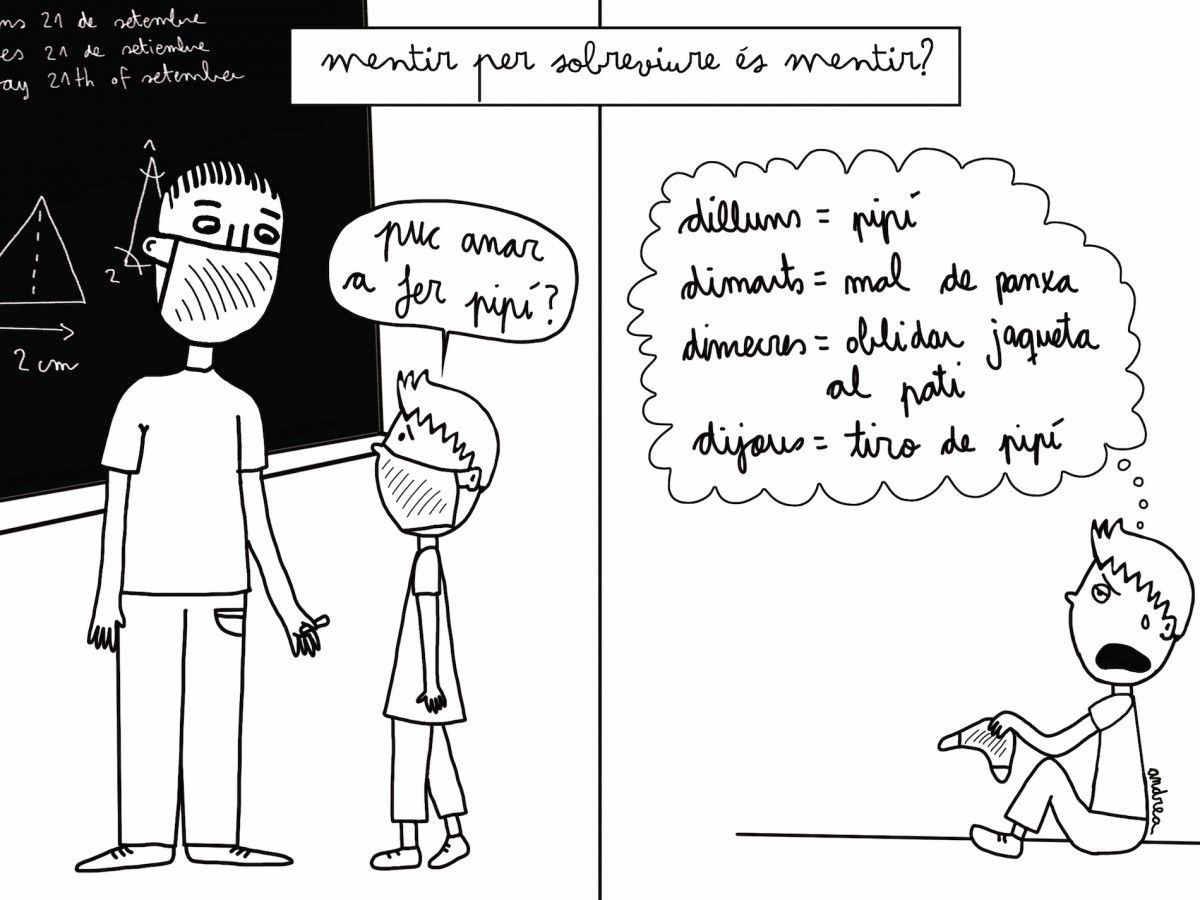 mentir per sobreviure és mentir?
ns 21 de setembre
es 21 de setiembre
ay 21th of setember
1
2
2 cm
puc anar
a fer pipí?
dilluns = pipí
dimarts = mal de panxa
dimecres = oblidar jaqueta
al pati
dijous = tiro de pipí
andrea